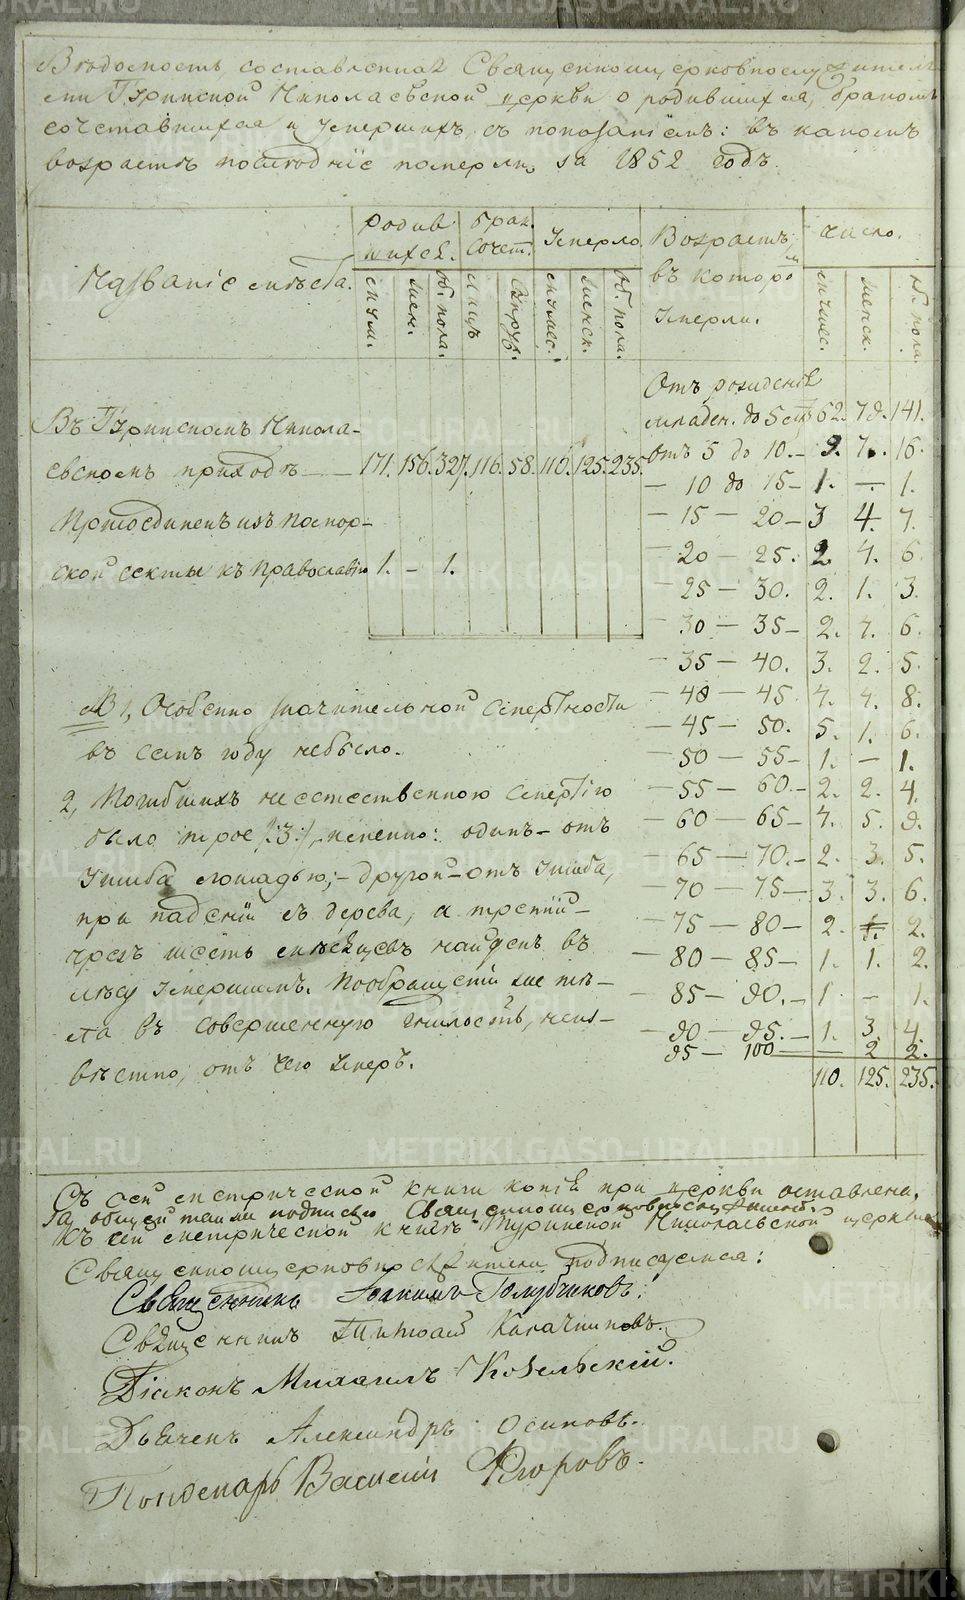 Вѣдомость, составленная Священноцерковнослужителя-
ми Туринской Николаевской церкви о родившихся, бракомъ
сочетавшихся и умершихъ, съ показаніемъ: въ какомъ
возрастѣ послѣдніе померли, за 1852 годъ.
Названіе мѣста.
Родив
шихся.
Брак.
Сочет.
Умерло
Возрастъ,
въ котор
Умерли.
Число.
муж. жен. об. пола. лицъ Супруж. мужес. женск. об. пола.
мужес. женск. об. пола.
Въ Туринскомъ Никола-
евскомъ приходѣ — 171. 156. 327. 116. 58. 110. 125. 235.
Присоединенъ изъ
ской секты къ Православію 1. – 1.
Отъ рожденія
младен. до 5 лѣтъ 62. 79. 141.
отъ 5 до 10. – 9. 7. 16.
— 10 до 15 – 1. — 1.
— 15 — 20 – 3 4. 7.
— 20 — 25. 2 4. 6.
— 25 — 30. 2. 1. 3.
— 30 — 35 – 2. 4. 6.
— 35 — 40. 3. 2. 5.
— 40 — 45 4. 4. 8.
— 45 — 50. 5. 1. 6.
— 50 — 55 – 1. — 1.
— 55 — 60. – 2. 2. 4.
— 60 — 65 – 4. 5. 9.
65 — 70. – 2. 3. 5.
— 70 — 75 – 3. 3. 6.
— 75 — 80 – 2. 2.
— 80 — 85 – 1. 1. 2.
— 85 — 90. – 1 – 1.
— 90 — 95. – 1. 3. 4.
95 — 100 — — 2 2.
110. 125. 235.
NB 1, Особенно значительной смертности
въ семъ году небыло.
2, Погибшихъ неестественною смертію
было трое /:3:/, именно: одинъ – отъ
ушиба лошадью; – другой – отъ ушиба,
при паденіи съ дерева, а третій –
чрезъ шесть мѣсяцевъ найденъ въ
лѣсу умершимъ. По обращеніи же тѣ-
ла въ совершенную гнилость, неиз-
вѣстно, отъ чего умеръ.
Съ сей метрической книги копія при церкви оставлена,
за общей таковою подписью Священноцерковнослужителей.
Къ сей метрической книгѣ Туринской Николаевской церкви
Священноцерковнослужители подписуемся:
Священникъ Іоакимъ Голубчиковъ.
Священникъ Калачниковъ.
Діаконъ Михаилъ Ковельскій.
Дьячекъ Александръ Осиповъ.
Пономарь Василій Егоровъ.
METRIKI.GASO-URAL.RU